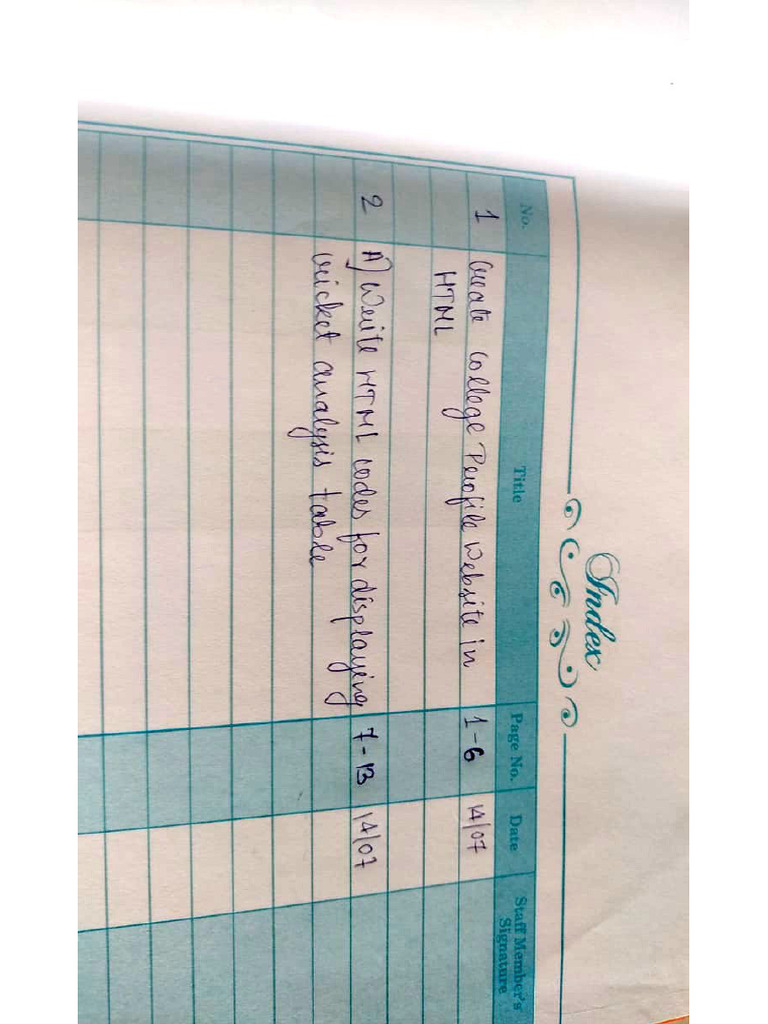 Index
No. Title Page No. Date Staff Member's Signature
1 Create College Profile Website in 1-6 14/07
HTML
2 A) Write HTML codes for displaying 7-13 14/07
cricket analysis table